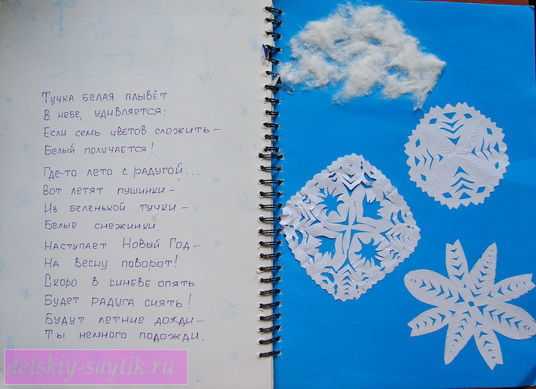 Тучка белая плывёт
В небе, удивляется:
Если семь цветов сложить –
Белый получается!
Где-то лето с радугой...
Вот летят пушинки –
Из беленькой тучки –
Белые снежинки
Наступает Новый Год –
На весну поворот!
Скоро в синеве опять
Будет радуга сиять!
Будут летние дожди –
Ты немного подожди.
detskiy-saytik.ru